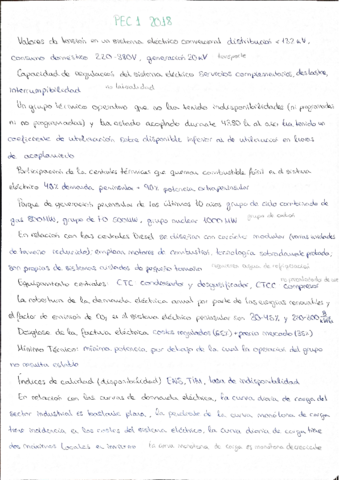 PEC 1 2018
Valores de tensión en un sistema eléctrico convencional distribución < 132 kV,
consumo doméstico 220-380V, generación 20 kV transporte
Capacidad de regulación del sistema eléctrico servicios complementarios, deslastre,
interrumpibilidad
Un grupo térmico operativo que no ha tenido indisponibilidades (ni programadas
ni no programadas) y ha estado acoplado durante h al año ha tenido un
coeficiente de utilización sobre disponible inferior al de utilización en horas
de acoplamiento
Participación de la centrales térmicas que queman combustible fósil en el sistema
eléctrico 40% demanda peninsular + 90% potencia extrapeninsular
Parque de generación peninsular de los últimos 10 años grupo de ciclo combinado de
gas 800MW, grupo de 500MW, grupo nuclear 1000MW grupo de
En relación con las centrales Diesel se diseñan con carácter modular (varias unidades
de tamaño reducido), emplean motores de combustión, tecnología sobradamente probada,
son propias de sistemas aislados de pequeño tamaño
Equipamiento centrales: CTC condensador y desgasificador, CTCC compresor
La cobertura de la demanda eléctrica anual por parte de las energías renovables y
el factor de emisión de CO2 en el sistema eléctrico peninsular son 30-45% y
Desglose de la factura eléctrica costes regulados (65%) + precio mercado (35%)
Mínimo Técnico: mínima potencia, por debajo de la cual la operación del grupo
no resulta estable
Índices de calidad (disponibilidad) ENS, TIM, tasa de indisponibilidad
En relación con las curvas de demanda eléctrica, la curva diaria de carga del
sector industrial es bastante plana, la pendiente de la curva monótona de carga
tiene incidencia en los costes del sistema eléctrico, la curva diaria de carga tiene
dos máximos locales en invierno la curva monótona de carga es monótona decreciente